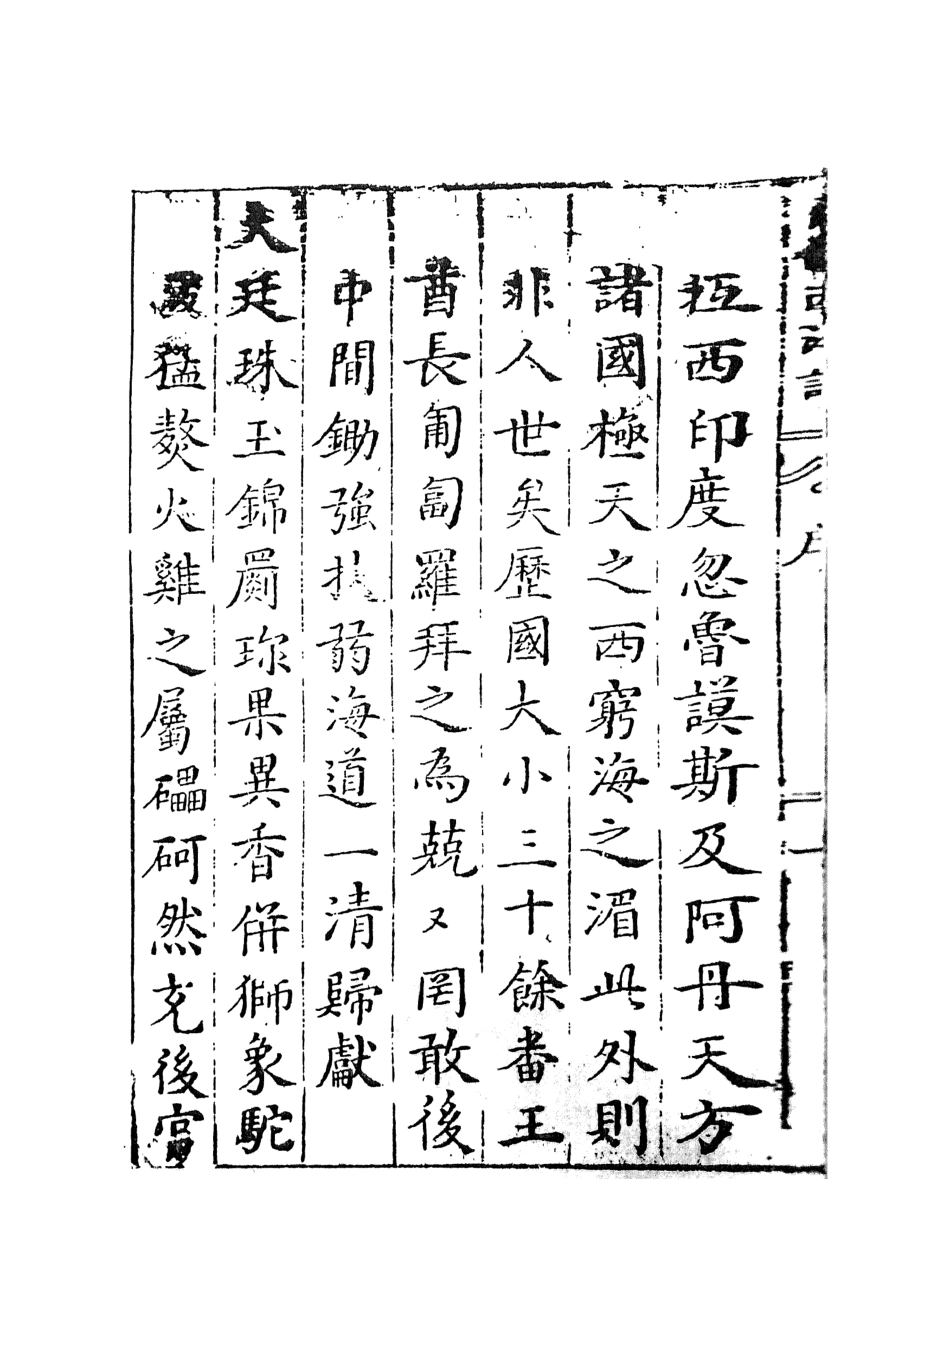 抵西印度忽魯謨斯及阿丹天方
諸國極天之西窮海之湄此外則
非人世矣歷國大小三十餘番王
酋長匍匐羅拜之為兢又罔敢後
中間鋤強扶弱海道一清歸獻
天廷珠玉錦罽珎果異香併獅象駝
猛獒火雞之屬礧砢然充後宮